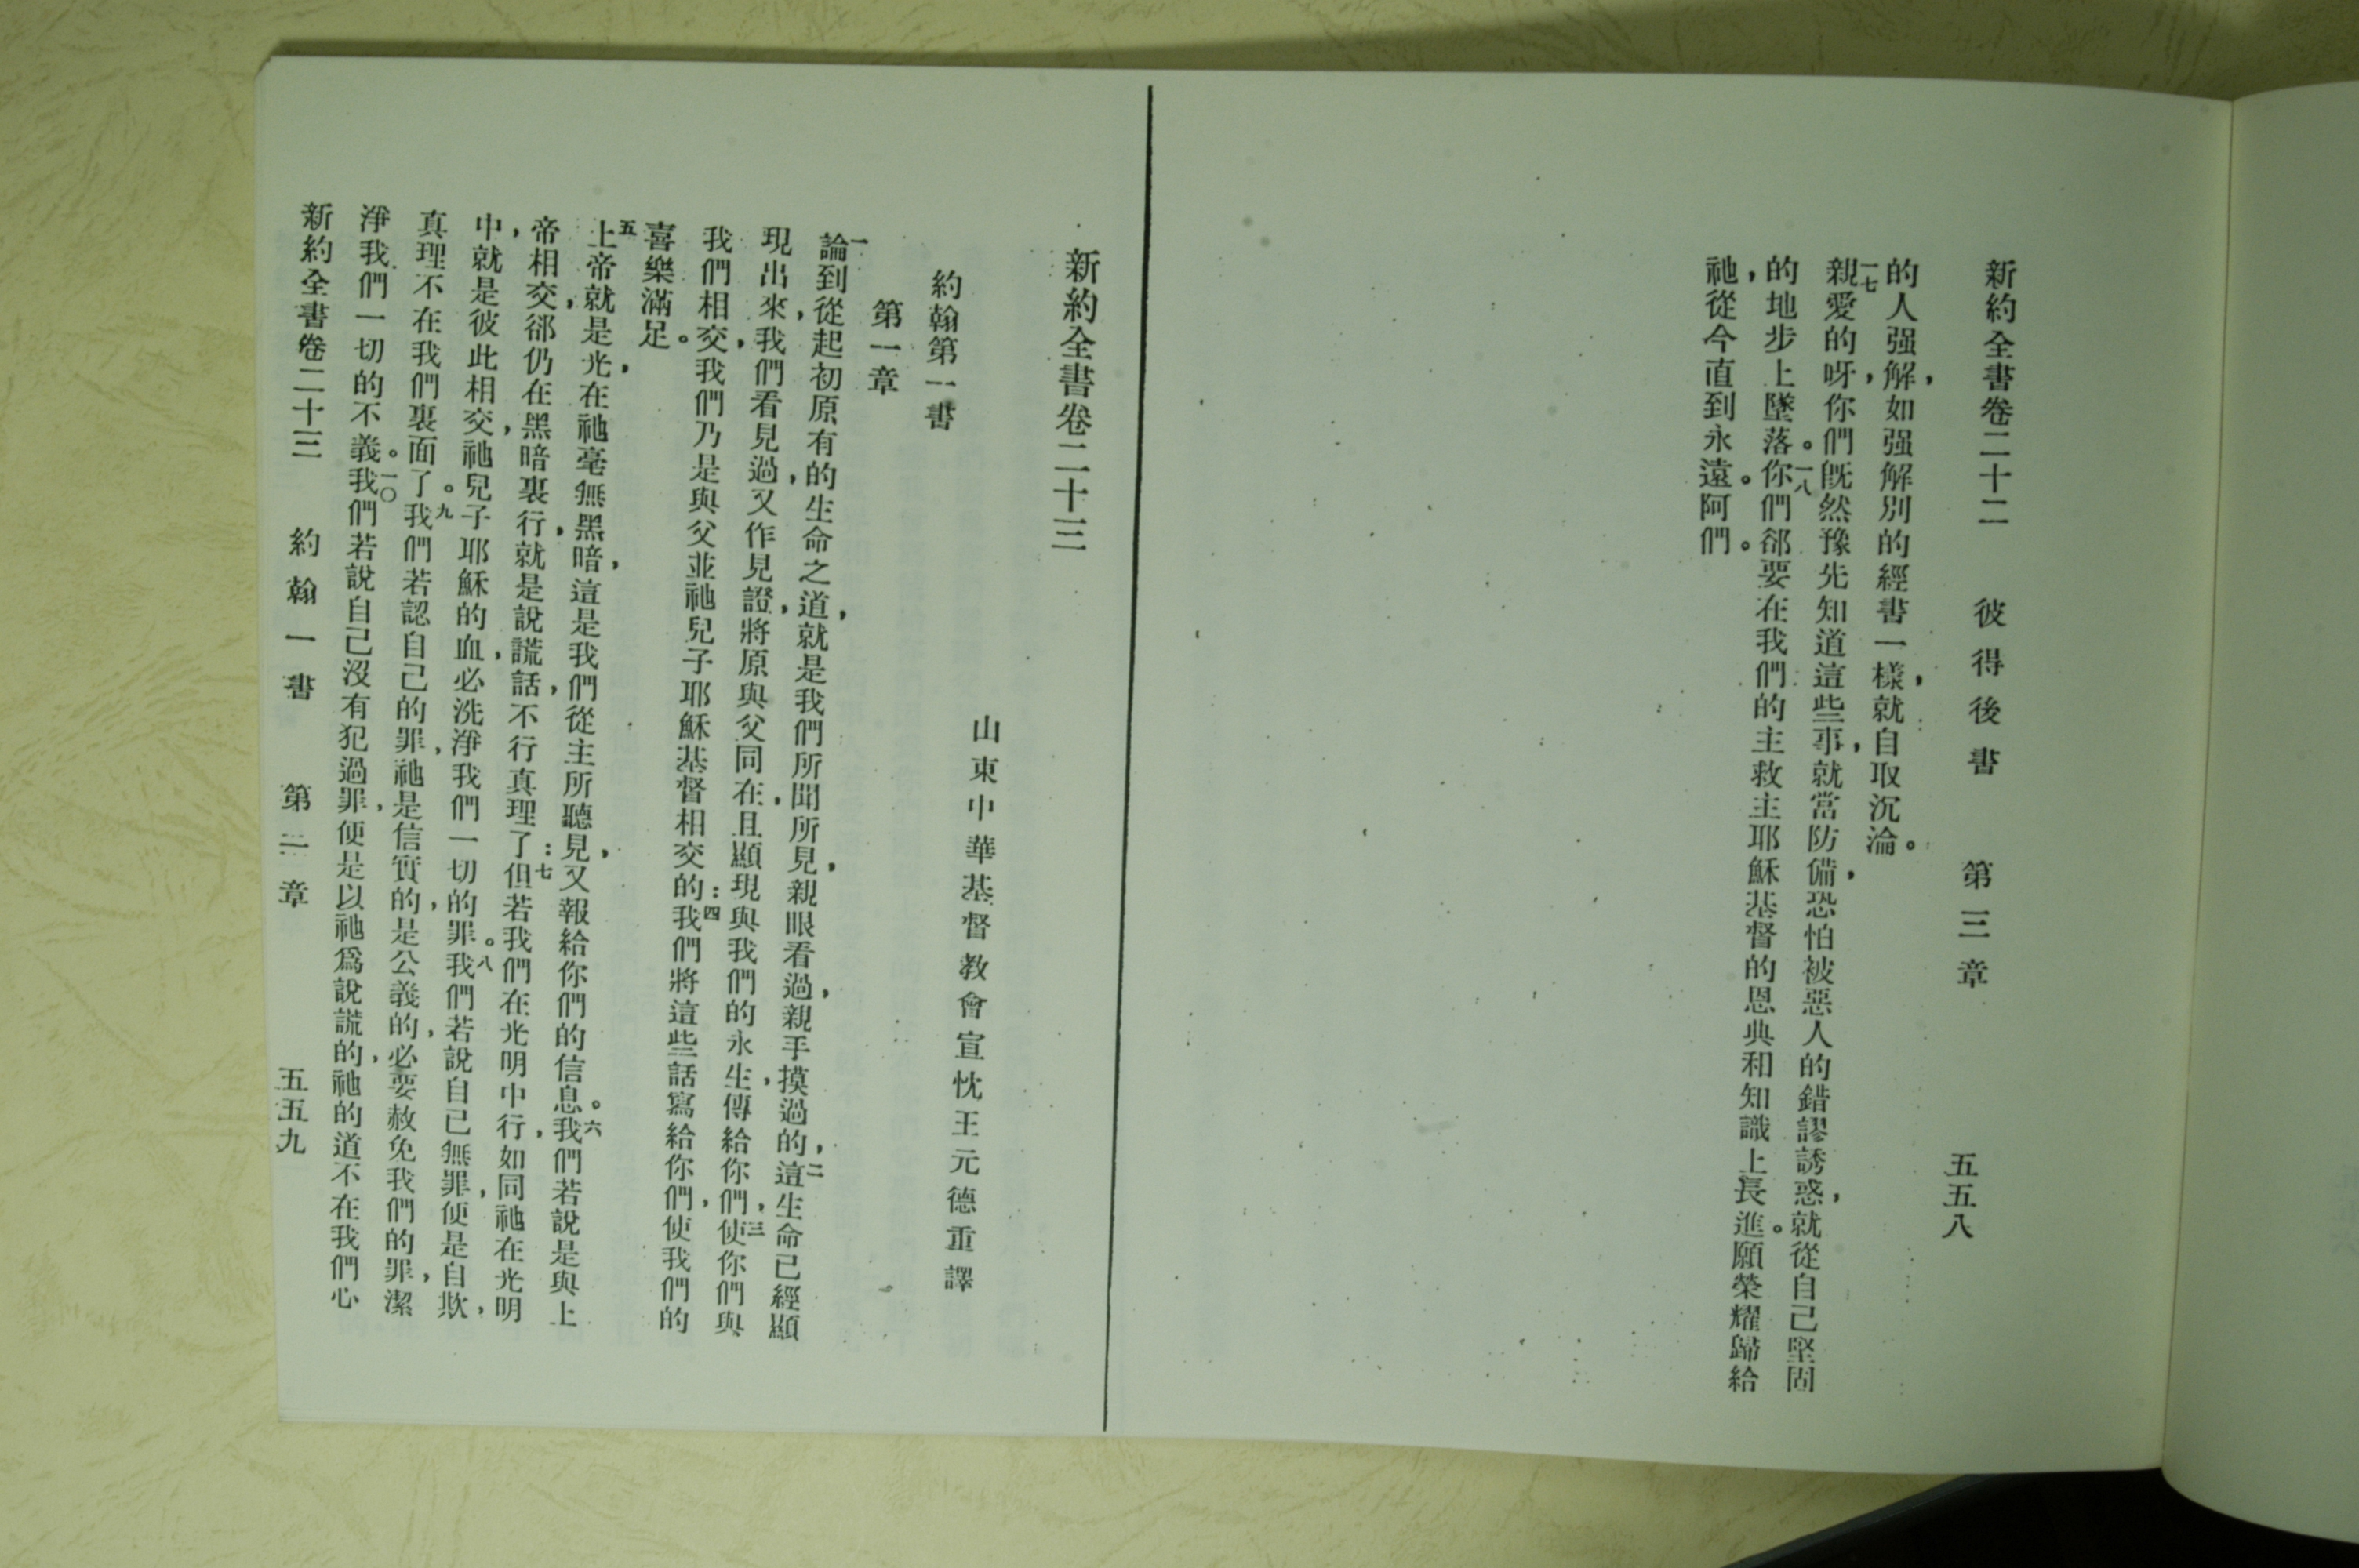 新約全書卷二十二 彼得後書 第三章 五五八
的人强解，如强解別的經書一樣，就自取沉淪。
一七親愛的呀，你們旣然豫先知道這些事，就當防備，恐怕被惡人的錯謬誘惑，就從自己堅固
的地步上墜落。一八你們郤要在我們的主救主耶穌基督的恩典和知識上長進。願榮耀歸給
祂，從今直到永遠。阿們。
新約全書卷二十三
山東中華基督教會宣忱王元德重譯
約翰第一書
第一章
一論到從起初原有的生命之道，就是我們所聞所見，親眼看過，親手摸過的，二這生命已經顯
現出來，我們看見過，又作見證，將原與父同在，且顯現與我們的永生，傳給你們，三使你們與
我們相交，我們乃是與父並祂兒子耶穌基督相交的：四我們將這些話寫給你們，使我們的
喜樂滿足。
五上帝就是光，在祂毫無黑暗，這是我們從主所聽見，又報給你們的信息。六我們若說是與上
帝相交，郤仍在黑暗裏行，就是說謊話，不行真理了：七但若我們在光明中行，如同祂在光明
中，就是彼此相交，祂兒子耶穌的血，必洗淨我們一切的罪。八我們若說自己無罪，便是自欺，
真理不在我們裏面了。九我們若認自己的罪，祂是信實的，是公義的，必要赦免我們的罪，潔
淨我們一切的不義。一〇我們若說自己沒有犯過罪，便是以祂爲說謊的，祂的道不在我們心
新約全書卷二十三 約翰一書 第二章 五五九